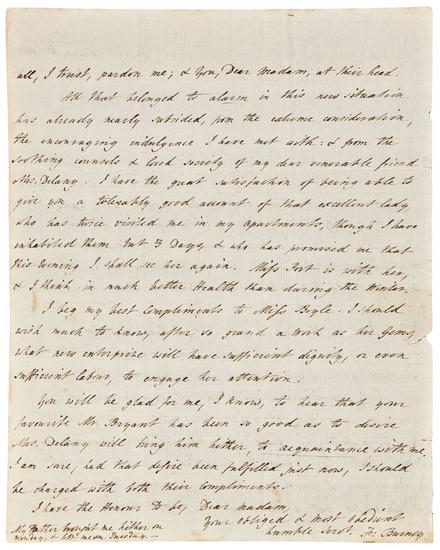 all, I trust, pardon me; & You, Dear Madam, at their head.
All that belonged to alarm in this new situation
has already nearly subsided, from the extreme consideration,
the encouraging indulgence I have met with: & from the
soothing counsels & loved society of my dear venerable friend
Mrs. Delany. I have the great satisfaction of being able to
give you a tolerably good account of that excellent lady,
who has twice visited me in my apartments, though I have
inhabited them but 3 Days, & who has promised me that
this Evening I shall see her again. Miss Port is with her,
& I think in much better Health than during the Winter.
I beg my best Compliments to Miss Boyle. I should
wish much to know, after so grand a Work as her Gems,
what new enterprize will have sufficient dignity, or even
sufficient labour, to engage her attention.
You will be glad for me, I know, to hear that your
favourite Mr. Bryant has been so good as to desire
Mrs. Delany will bring him hither, to acquaintance with me.
I am sure, had that desire been fulfilled just now, I should
be charged with both their Compliments.
I have the Honour to be, Dear madam,
Your obliged & most obedient
humble servt. F. Burney
My Father brought me hither on
Monday, & left me on Tuesday. —